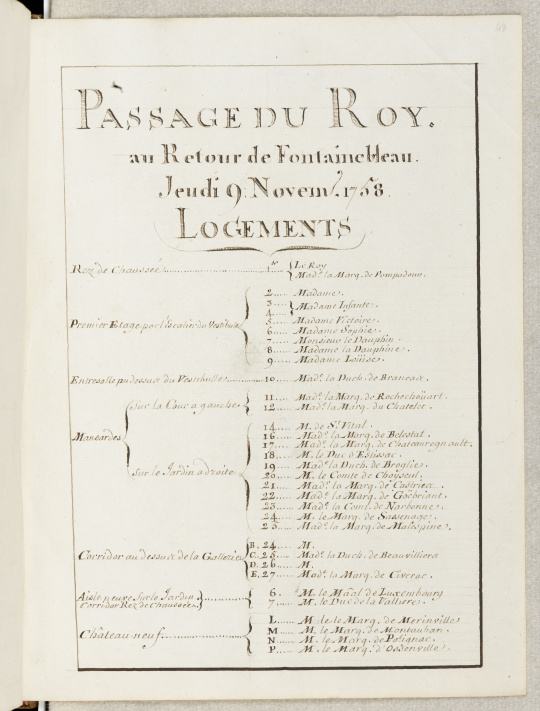 PASSAGE DU ROY.
au Retour de Fontainebleau.
Jeudi 9. Novem.^b. 1758.
LOGEMENTS
Rez de Chaussée ............ 1^er { Le Roy
Mad^e. la Marq. de Pompadour.
2..... Madame.
3..... Madame Infante.
4.....
Premier Etage par l'escalier du Vestibule { 5..... Madame Victoire.
6..... Madame Sophie.
7..... Monsieur le Dauphin.
8..... Madame la Dauphine.
9..... Madame Loüise.
Entresolle au dessus du Vestibulle ........ 10..... Mad^e. la Duch. de Brancax.
sur la Cour a gauche { 11..... Mad^e. la Marq. de Rochechoüart.
12..... Mad^e. la Marq. du Chatelet.
Mansardes
14..... M. de S^t. Vital.
16..... Mad^e. la Marq. de Belestat.
17..... Mad^e. la Marq. de Chateauregnault.
18..... M. le Duc d'Estissac.
sur le Jardin a droite { 19..... Mad^e. la Duch. de Broglie.
20..... M. le Comte de Choiseul.
21..... Mad^e. la Marq. de Castries.
22..... Mad^e. la Marq. de Goebriant.
23..... Mad^e. la Comt. de Narbonne.
24..... M. le Marq. de Sassenage.
25..... Mad^e. la Marq. de Malespine.
B. 24..... M.
Corridor au dessus de la Gallerie { C. 25..... Mad^e. la Duch. de Beauvilliers
D. 26..... M.
E. 27..... Mad^e. la Marq. de Civerac.
Aisle neuve Sur le Jardin 6. M. le Maāl de Luxembourg
Corridor Rez de Chaussée 7..... M. le Duc de la Valliere.
L..... M. le Marq. de Merinville
M..... M. le Marq. de Montauban.
Château neuf ............ { N..... M. le Marq. de Polignac.
P..... M. le Marq. d'Osdenville.